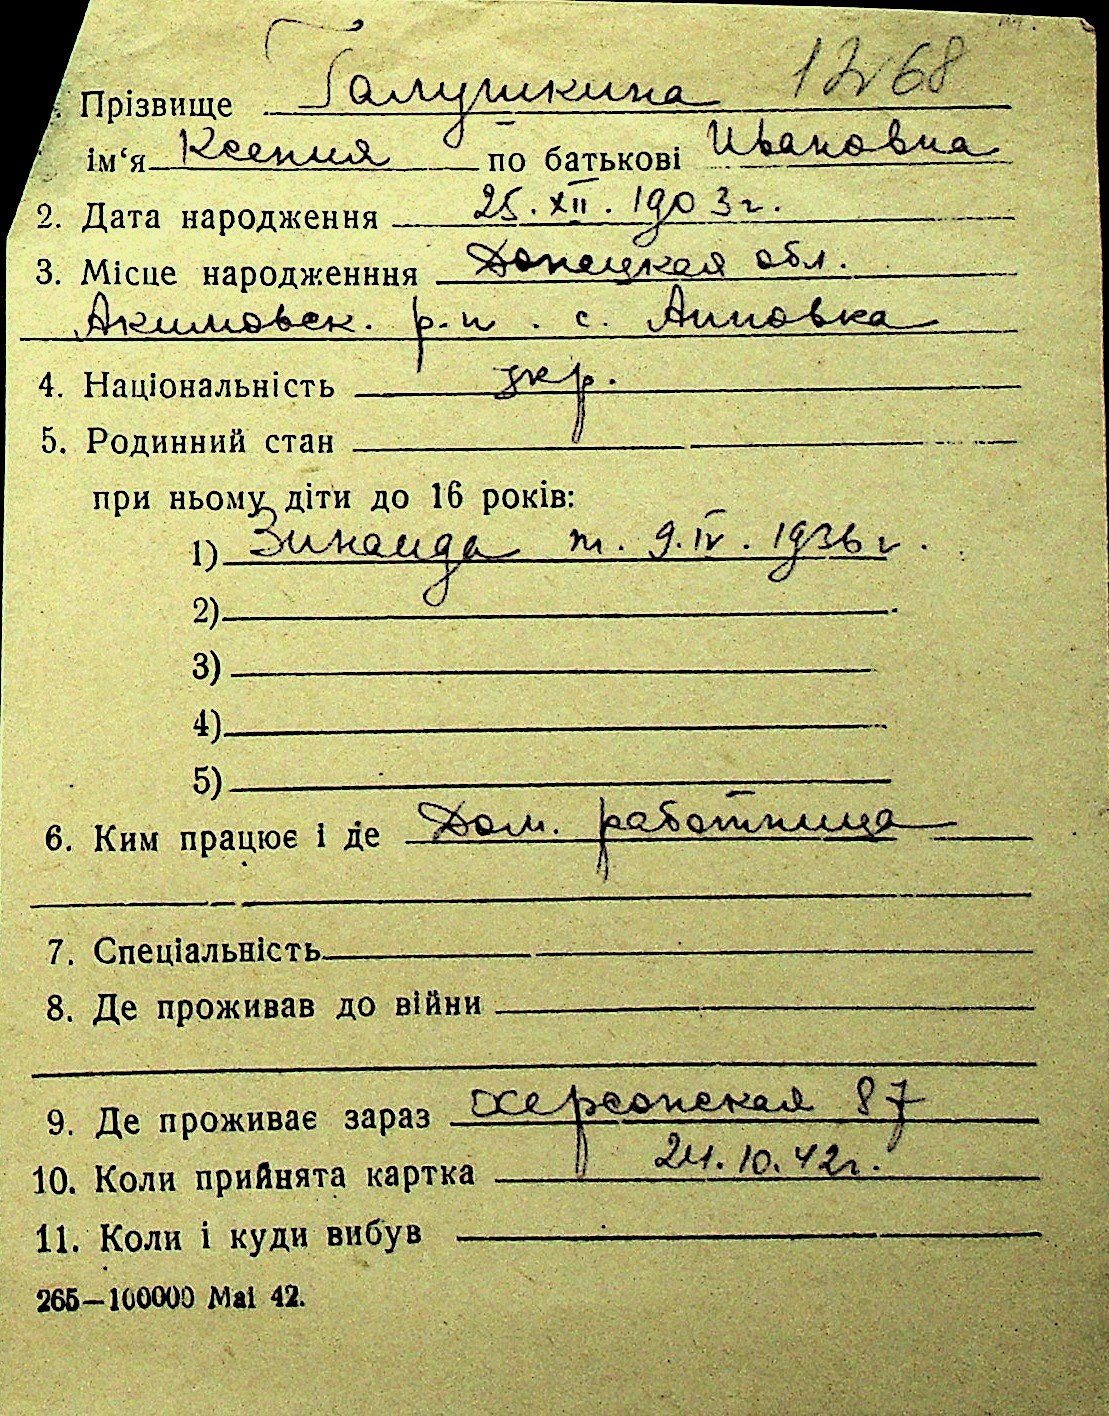 12468
Прізвище Галушкина
ім‘я Ксения по батькові Ивановна
2. Дата народження 25. XII. 1903 г.
3. Місце народженння Донецкая обл.
Акимовск. р-н. с. Анновка
4. Національність укр.
5. Родинний стан
при ньому діти до 16 років:
1) Зинаида 9. IV. 1936 г.
2)
3)
4)
5)
6. Ким працює і де Дом. работница
7. Спеціальність
8. Де проживав до війни
9. Де проживає зараз Херсонская 87
10. Коли прийнята картка 24. 10. 42 г.
11. Коли і куди вибув
265—100000 Mai 42.